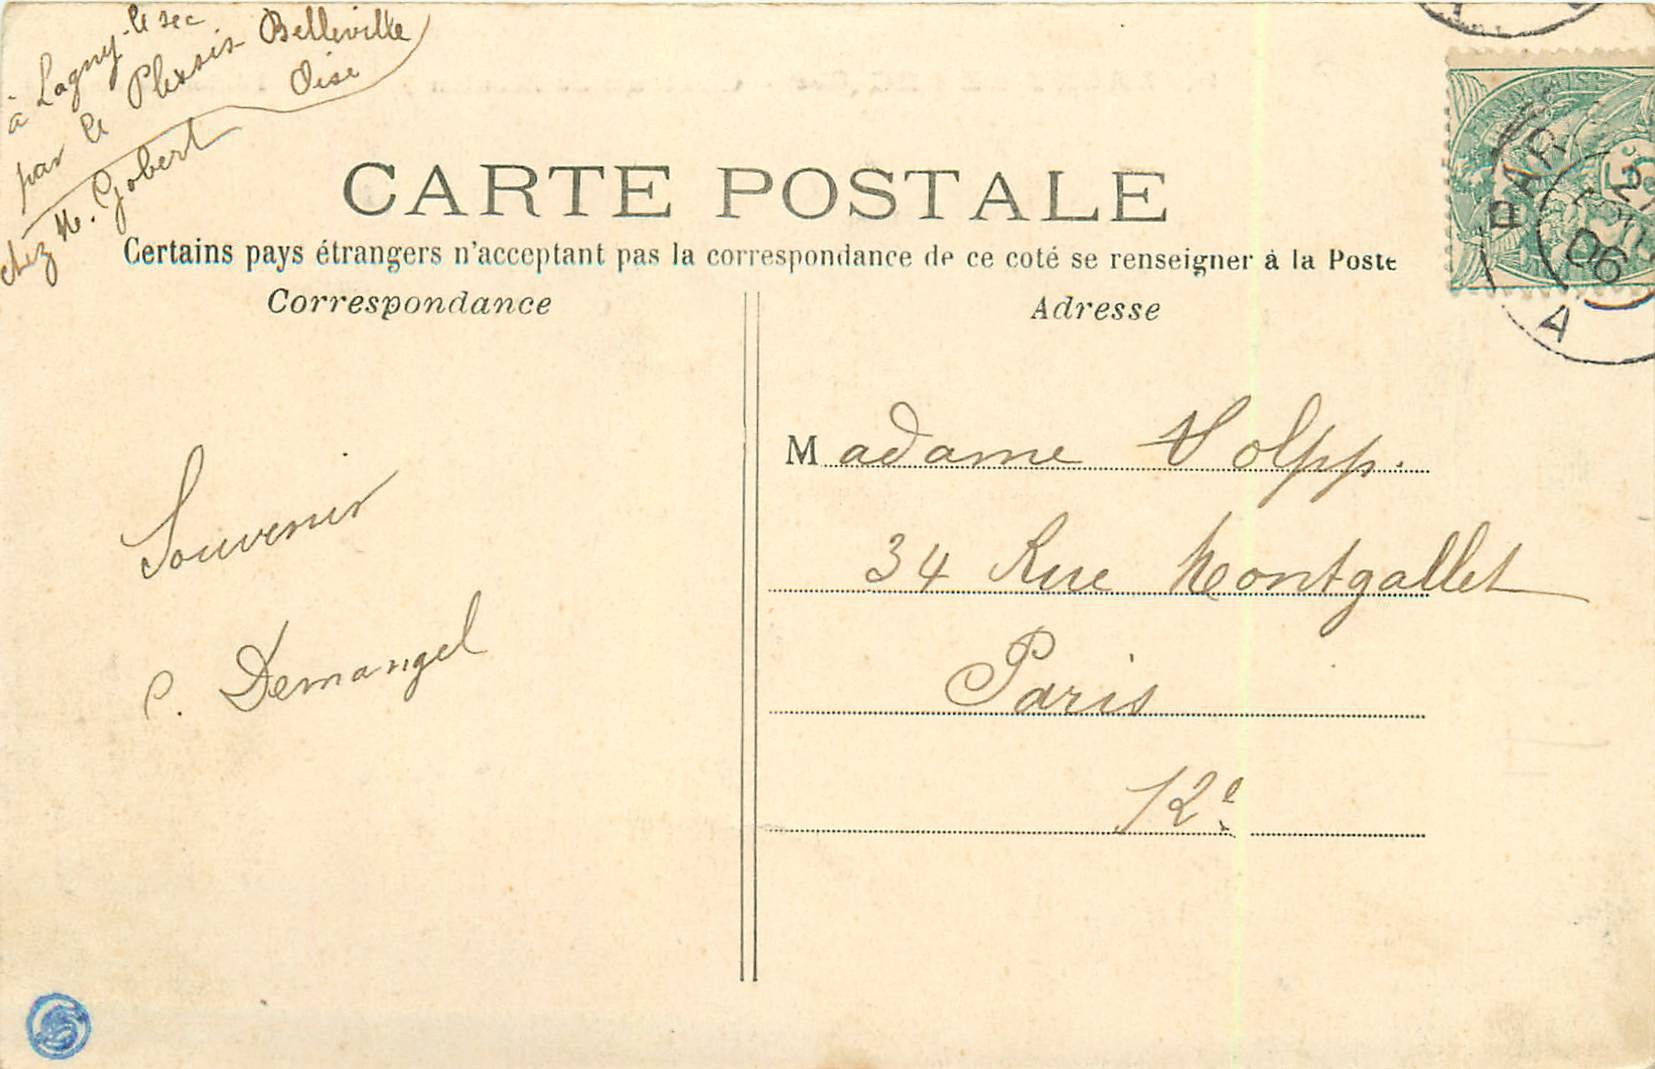 à Lagny-le sec
par le Plessis Belleville
Oise
chez M. Gobert
CARTE POSTALE
Certains pays étrangers n'acceptant pas la correspondance de ce coté se renseigner à la Poste
Correspondance
Adresse
Souvenir
C. Demangel
Madame Volpp.
34 Rue Montgallet
Paris
12e
PAR
06
A